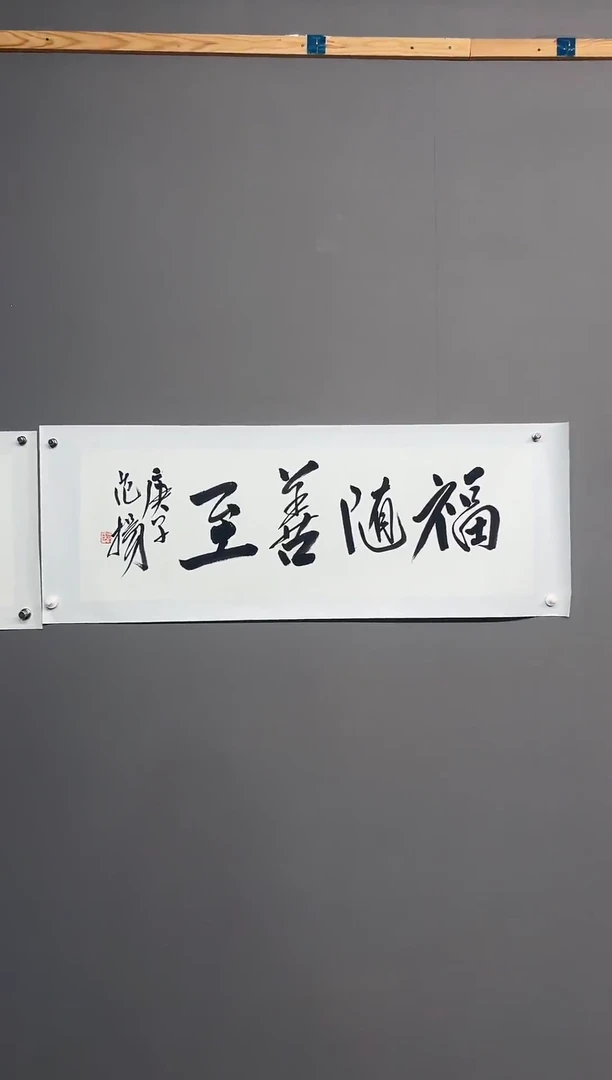 福随善至
庚子
范扬